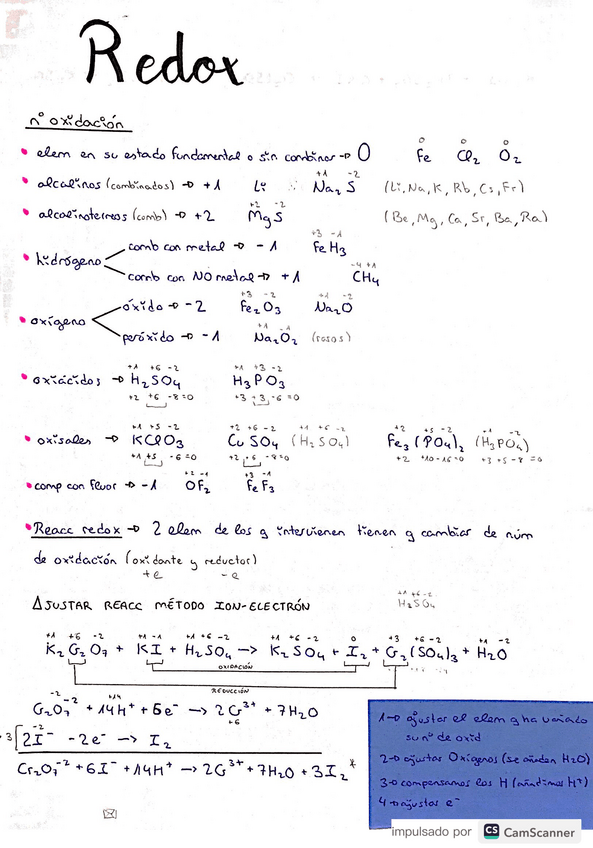 Redox
nº oxidación
• elem en su estado fundamental o sin combinar → 0 Fe⁰ Cl₂⁰ O₂⁰
• alcalinos (combinados) → +1 Li Na₂S +1 -2 (Li, Na, K, Rb, Cs, Fr)
• alcalinoterreos (comb) → +2 MgS +2 -2 (Be, Mg, Ca, Sr, Ba, Ra)
• hidrógeno
comb con metal → -1 FeH₃ +3 -1
comb con NO metal → +1 CH₄ -4 +1
• oxígeno
óxido → -2 Fe₂O₃ +3 -2 Na₂O +1 -2
peróxido → -1 Na₂O₂ +1 -1 (rasos)
+1 +6 -2 +1 +3 -2
• oxiácidos → H₂SO₄ H₃PO₃
+2 +6 -8=0 +3 +3 -6=0
+1 +5 -2 +2 +6 -2 +1 +6 -2 +2 +5 -2 +1 -2
• oxisales → KClO₃ CuSO₄ (H₂SO₄) Fe₃(PO₄)₂ (H₃PO₄)
+1 +5 -6=0 +2 +6 -8=0 +2 +10-16=0 +3 +5-8=0
+2 -1 +3 -1
• comp con fluor → -1 OF₂ FeF₃
• Reacc redox → 2 elem de los q intervienen tienen q cambiar de núm
de oxidación (oxidante y reductor)
+e -e
AJUSTAR REACC MÉTODO ION-ELECTRÓN
+1 +6 -2
H₂SO₄
+1 +6 -2 +1 -1 +1 +6 -2 +1 +6 -2 0 +3 +6 -2 +1 -2
K₂Cr₂O₇ + KI + H₂SO₄ → K₂SO₄ + I₂ + Cr₂(SO₄)₃ + H₂O
OXIDACIÓN
REDUCCIÓN
Cr₂O₇⁻² + 14H⁺ + 6e⁻ → 2Cr³⁺ + 7H₂O
+6
3 [2I⁻ - 2e⁻ → I₂
Cr₂O₇⁻² + 6I⁻ + 14H⁺ → 2Cr³⁺ + 7H₂O + 3I₂*
1→ ajustar el elem q ha variado
su nº de oxid
2→ ajustar Oxígenos (se añaden H₂O)
3→ compensamos los H (añadimos H⁺)
4→ ajustas e⁻
impulsado por CS CamScanner